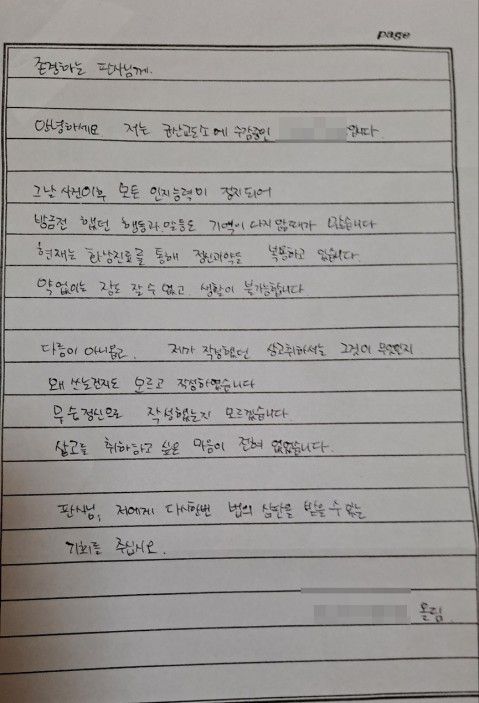 page
존경하는 판사님께.
안녕하세요 저는 군산교도소에 수감중인 입니다.
그날 사건이후 모든 인지능력이 정지되어
방금전 했던 행동과 말들도 기억이 나지 않을때가 많습니다
현재는 화상진료를 통해 정신과약을 복용하고 있습니다.
약 없이는 잠도 잘 수 없고. 생활이 불가능합니다
다름이 아니옵고. 제가 작성했던 상고취하서는 그것이 무엇인지
왜 쓰는건지도 모르고 작성하였습니다
무슨정신으로 작성했는지 모르겠습니다.
상고를 취하하고 싶은 마음이 전혀 없었습니다.
판사님, 저에게 다시한번 법의 심판을 받을 수 있는
기회를 주십시오.
올림.